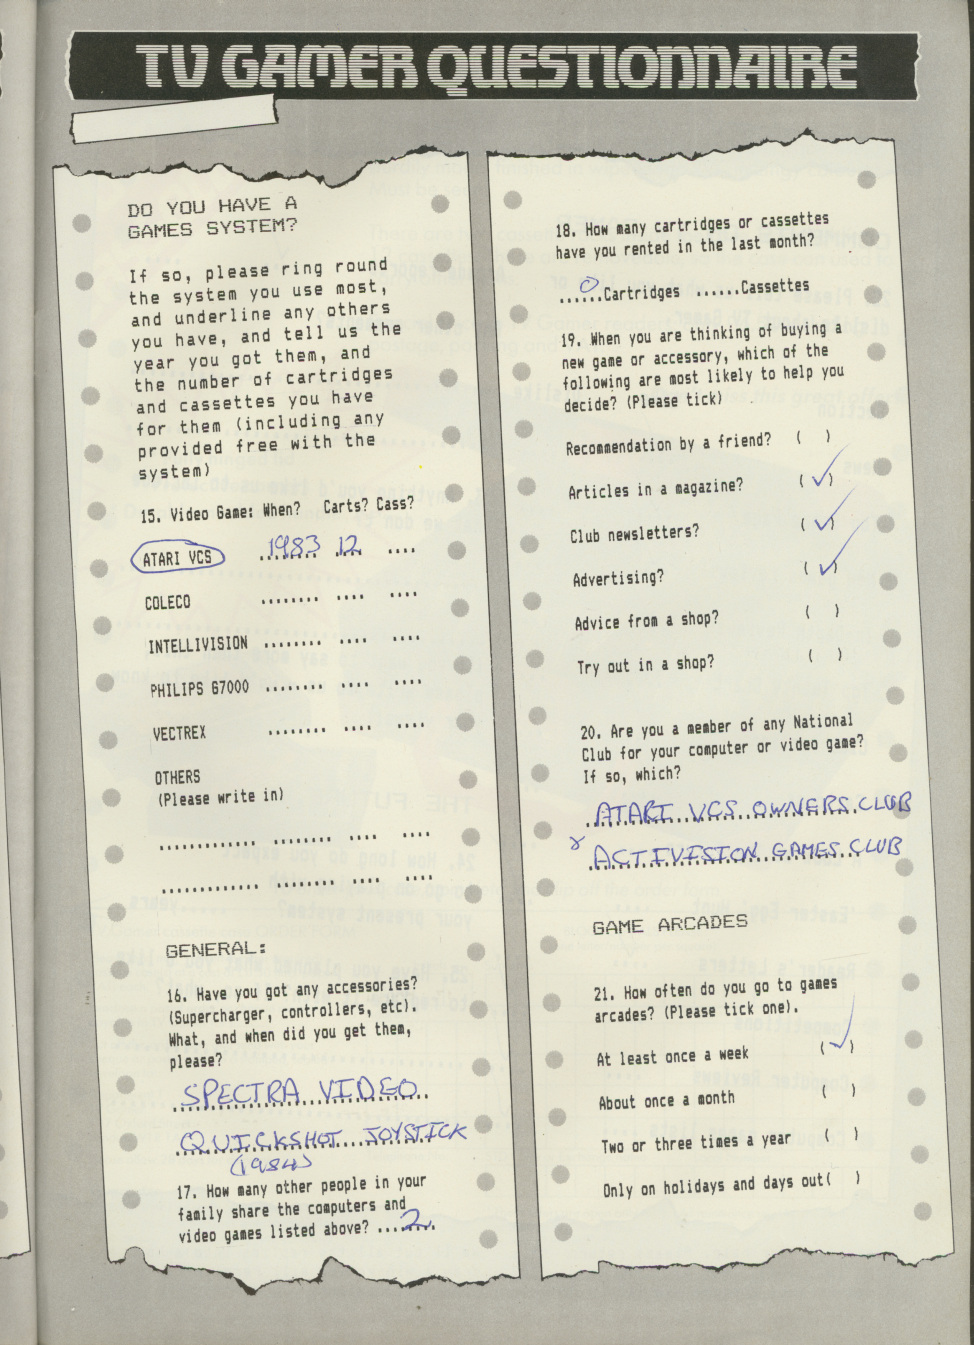 TV GAMER QUESTIONNAIRE
DO YOU HAVE A
GAMES SYSTEM?
If so, please ring round
the system you use most,
and underline any others
you have, and tell us the
year you got them, and
the number of cartridges
and cassettes you have
for them (including any
provided free with the
system)
15. Video Game: When? Carts? Cass?
ATARI VCS 1983 12 ....
COLECO ........ .... ....
INTELLIVISION ........ .... ....
PHILIPS G7000 ........ .... ....
VECTREX ........ .... ....
OTHERS
(Please write in)
............. ........ .... ....
............. ........ .... ....
GENERAL:
16. Have you got any accessories?
(Supercharger, controllers, etc).
What, and when did you get them,
please?
SPECTRA VIDEO
QUICKSHOT JOYSTICK
(1984)
17. How many other people in your
family share the computers and
video games listed above? ....2..
18. How many cartridges or cassettes
have you rented in the last month?
0
......Cartridges ......Cassettes
19. When you are thinking of buying a
new game or accessory, which of the
following are most likely to help you
decide? (Please tick)
Recommendation by a friend? ( )
Articles in a magazine? (✓)
Club newsletters? (✓)
Advertising? (✓)
Advice from a shop? ( )
Try out in a shop? ( )
20. Are you a member of any National
Club for your computer or video game?
If so, which?
ATARI VCS OWNERS CLUB
& ACTIVISION GAMES CLUB
GAME ARCADES
21. How often do you go to games
arcades? (Please tick one).
At least once a week (✓)
About once a month ( )
Two or three times a year ( )
Only on holidays and days out( )